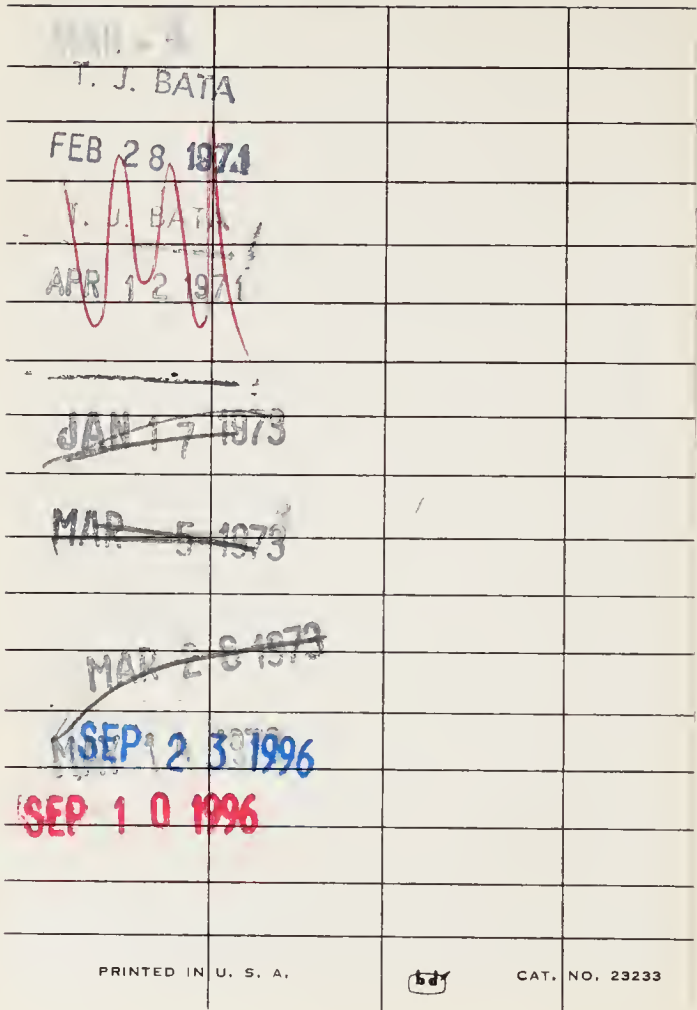 T. J. BATA
FEB 28 1971
T. J. BATA
APR 12 1971
JAN 17 1973
MAR 5 1973
MAR 28 1973
SEP 23 1996
SEP 10 1996
PRINTED IN U. S. A.
bd
CAT. NO. 23233